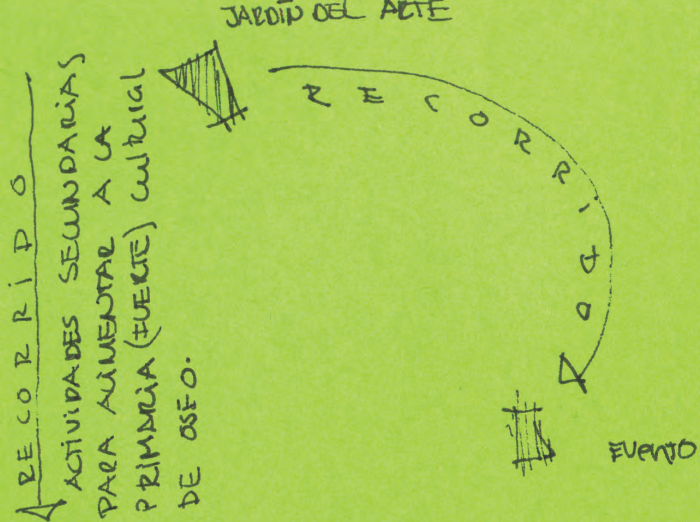 JARDÍN DEL ARTE
RECORRIDO
RECORRIDO
ACTIVIDADES SECUNDARIAS
PARA ALIMENTAR A LA
PRIMARIA (FUERTE) CULTURAL
DE OSEO.
EVENTO